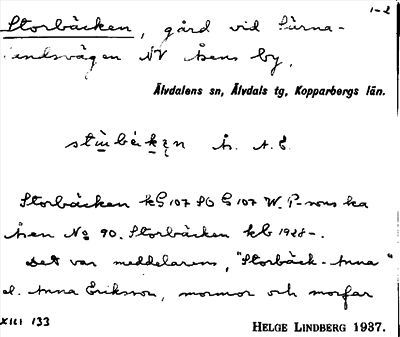 1-2
Storbäcken, gård vid Särna-
landsvägen NV Åsens by,
Älvdalens sn, Älvdals tg, Kopparbergs län.
Ås. A.E.
Storbäcken kG 107 SO G 107 W.
Åsen No 90. Storbäcken kb 1928-.
Det var meddelarens, "Storbäck-Anna"
el. Anna Eriksson, mormor och morfar
XIII 133
HELGE LINDBERG 1937.